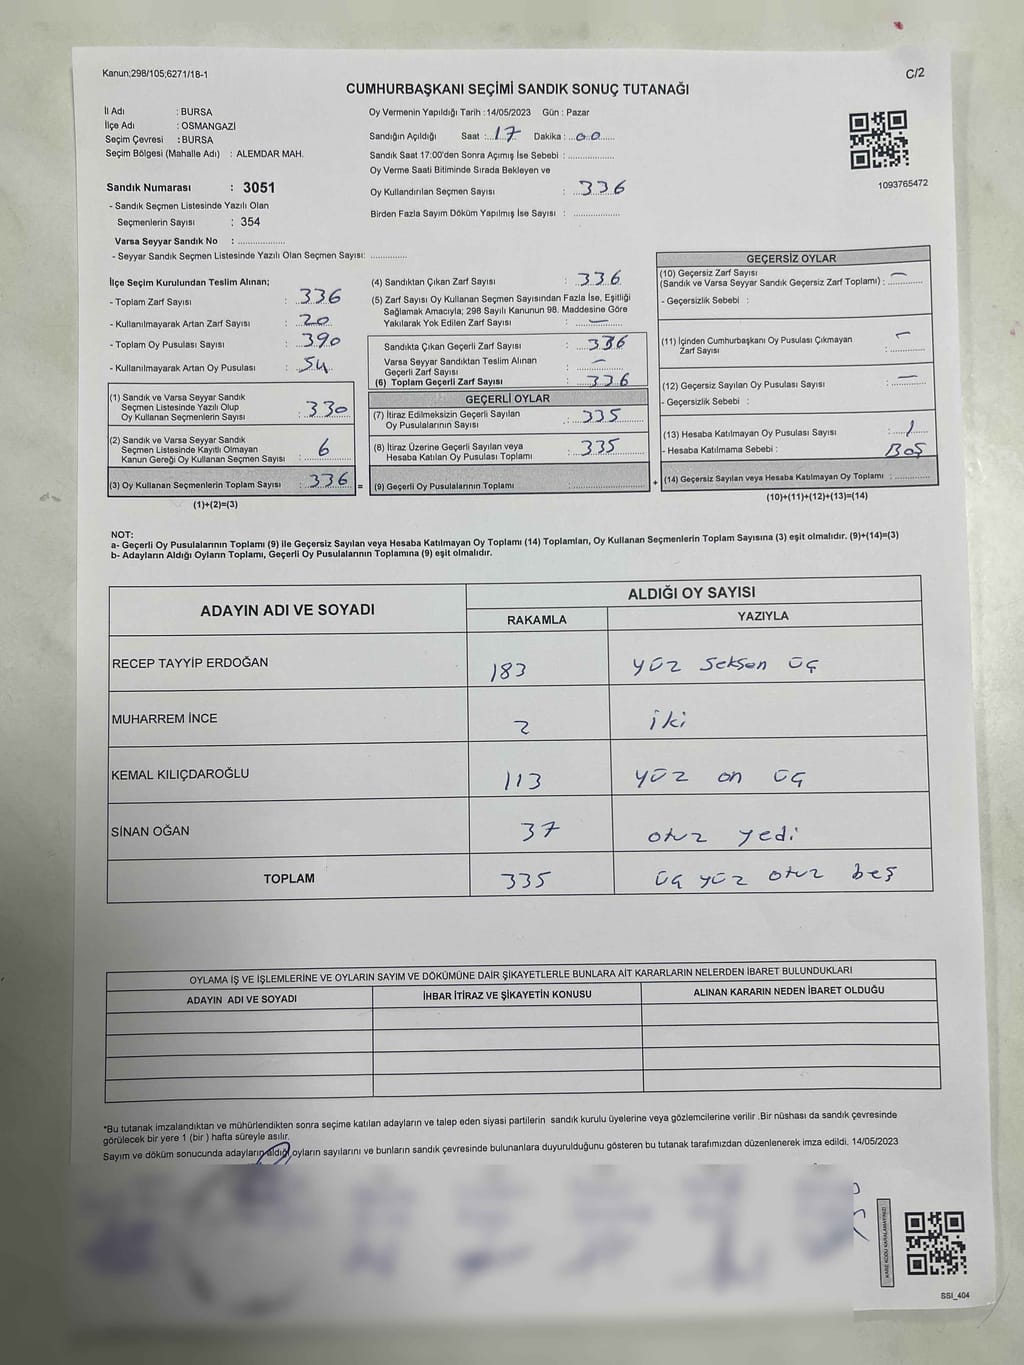 Kanun;298/105;6271/18-1
C/2
CUMHURBAŞKANI SEÇİMİ SANDIK SONUÇ TUTANAĞI
İl Adı : BURSA
İlçe Adı : OSMANGAZİ
Seçim Çevresi : BURSA
Seçim Bölgesi (Mahalle Adı) : ALEMDAR MAH.
Sandık Numarası : 3051
- Sandık Seçmen Listesinde Yazılı Olan
Seçmenlerin Sayısı : 354
Varsa Seyyar Sandık No : ..................
- Seyyar Sandık Seçmen Listesinde Yazılı Olan Seçmen Sayısı: .............
Oy Vermenin Yapıldığı Tarih : 14/05/2023 Gün : Pazar
Sandığın Açıldığı Saat : 17 Dakika : 00
Sandık Saat 17:00'den Sonra Açımış İse Sebebi : ..................
Oy Verme Saati Bitiminde Sırada Bekleyen ve
Oy Kullandırılan Seçmen Sayısı : 336
Birden Fazla Sayım Döküm Yapılmış İse Sayısı : ..................
1093765472
İlçe Seçim Kurulundan Teslim Alınan;
- Toplam Zarf Sayısı : 336
- Kullanılmayarak Artan Zarf Sayısı : 20
- Toplam Oy Pusulası Sayısı : 390
- Kullanılmayarak Artan Oy Pusulası : 54
(1) Sandık ve Varsa Seyyar Sandık
Seçmen Listesinde Yazılı Olup
Oy Kullanan Seçmenlerin Sayısı : 330
(2) Sandık ve Varsa Seyyar Sandık
Seçmen Listesinde Kayıtlı Olmayan
Kanun Gereği Oy Kullanan Seçmen Sayısı : 6
(3) Oy Kullanan Seçmenlerin Toplam Sayısı : 336 =
(1)+(2)=(3)
(4) Sandıktan Çıkan Zarf Sayısı : 336
(5) Zarf Sayısı Oy Kullanan Seçmen Sayısından Fazla İse, Eşitliği
Sağlamak Amacıyla; 298 Sayılı Kanunun 98. Maddesine Göre
Yakılarak Yok Edilen Zarf Sayısı : —
Sandıkta Çıkan Geçerli Zarf Sayısı : 336
Varsa Seyyar Sandıktan Teslim Alınan
Geçerli Zarf Sayısı : —
(6) Toplam Geçerli Zarf Sayısı : 336
GEÇERLİ OYLAR
(7) İtiraz Edilmeksizin Geçerli Sayılan
Oy Pusulalarının Sayısı : 335
(8) İtiraz Üzerine Geçerli Sayılan veya
Hesaba Katılan Oy Pusulası Toplamı : 335
(9) Geçerli Oy Pusulalarının Toplamı : .................. +
GEÇERSİZ OYLAR
(10) Geçersiz Zarf Sayısı
(Sandık ve Varsa Seyyar Sandık Geçersiz Zarf Toplamı) : —
- Geçersizlik Sebebi :
(11) İçinden Cumhurbaşkanı Oy Pusulası Çıkmayan
Zarf Sayısı : —
(12) Geçersiz Sayılan Oy Pusulası Sayısı : —
- Geçersizlik Sebebi :
(13) Hesaba Katılmayan Oy Pusulası Sayısı : 1
- Hesaba Katılmama Sebebi : Boş
(14) Geçersiz Sayılan veya Hesaba Katılmayan Oy Toplamı : ............
(10)+(11)+(12)+(13)=(14)
NOT:
a- Geçerli Oy Pusulalarının Toplamı (9) ile Geçersiz Sayılan veya Hesaba Katılmayan Oy Toplamı (14) Toplamları, Oy Kullanan Seçmenlerin Toplam Sayısına (3) eşit olmalıdır. (9)+(14)=(3)
b- Adayların Aldığı Oyların Toplamı, Geçerli Oy Pusulalarının Toplamına (9) eşit olmalıdır.
ADAYIN ADI VE SOYADI ALDIĞI OY SAYISI
RAKAMLA YAZIYLA
RECEP TAYYİP ERDOĞAN 183 yüz seksen üç
MUHARREM İNCE 2 iki
KEMAL KILIÇDAROĞLU 113 yüz on üç
SİNAN OĞAN 37 otuz yedi
TOPLAM 335 üç yüz otuz beş
OYLAMA İŞ VE İŞLEMLERİNE VE OYLARIN SAYIM VE DÖKÜMÜNE DAİR ŞİKAYETLERLE BUNLARA AİT KARARLARIN NELERDEN İBARET BULUNDUKLARI
ADAYIN ADI VE SOYADI İHBAR İTİRAZ VE ŞİKAYETİN KONUSU ALINAN KARARIN NEDEN İBARET OLDUĞU
*Bu tutanak imzalandıktan ve mühürlendikten sonra seçime katılan adayların ve talep eden siyasi partilerin sandık kurulu üyelerine veya gözlemcilerine verilir .Bir nüshası da sandık çevresinde
görülecek bir yere 1 (bir ) hafta süreyle asılır.
Sayım ve döküm sonucunda adayların aldığı oyların sayılarını ve bunların sandık çevresinde bulunanlara duyurulduğunu gösteren bu tutanak tarafımızdan düzenlenerek imza edildi. 14/05/2023
KARE KODU KARALAMAYINIZ!
SSI_404